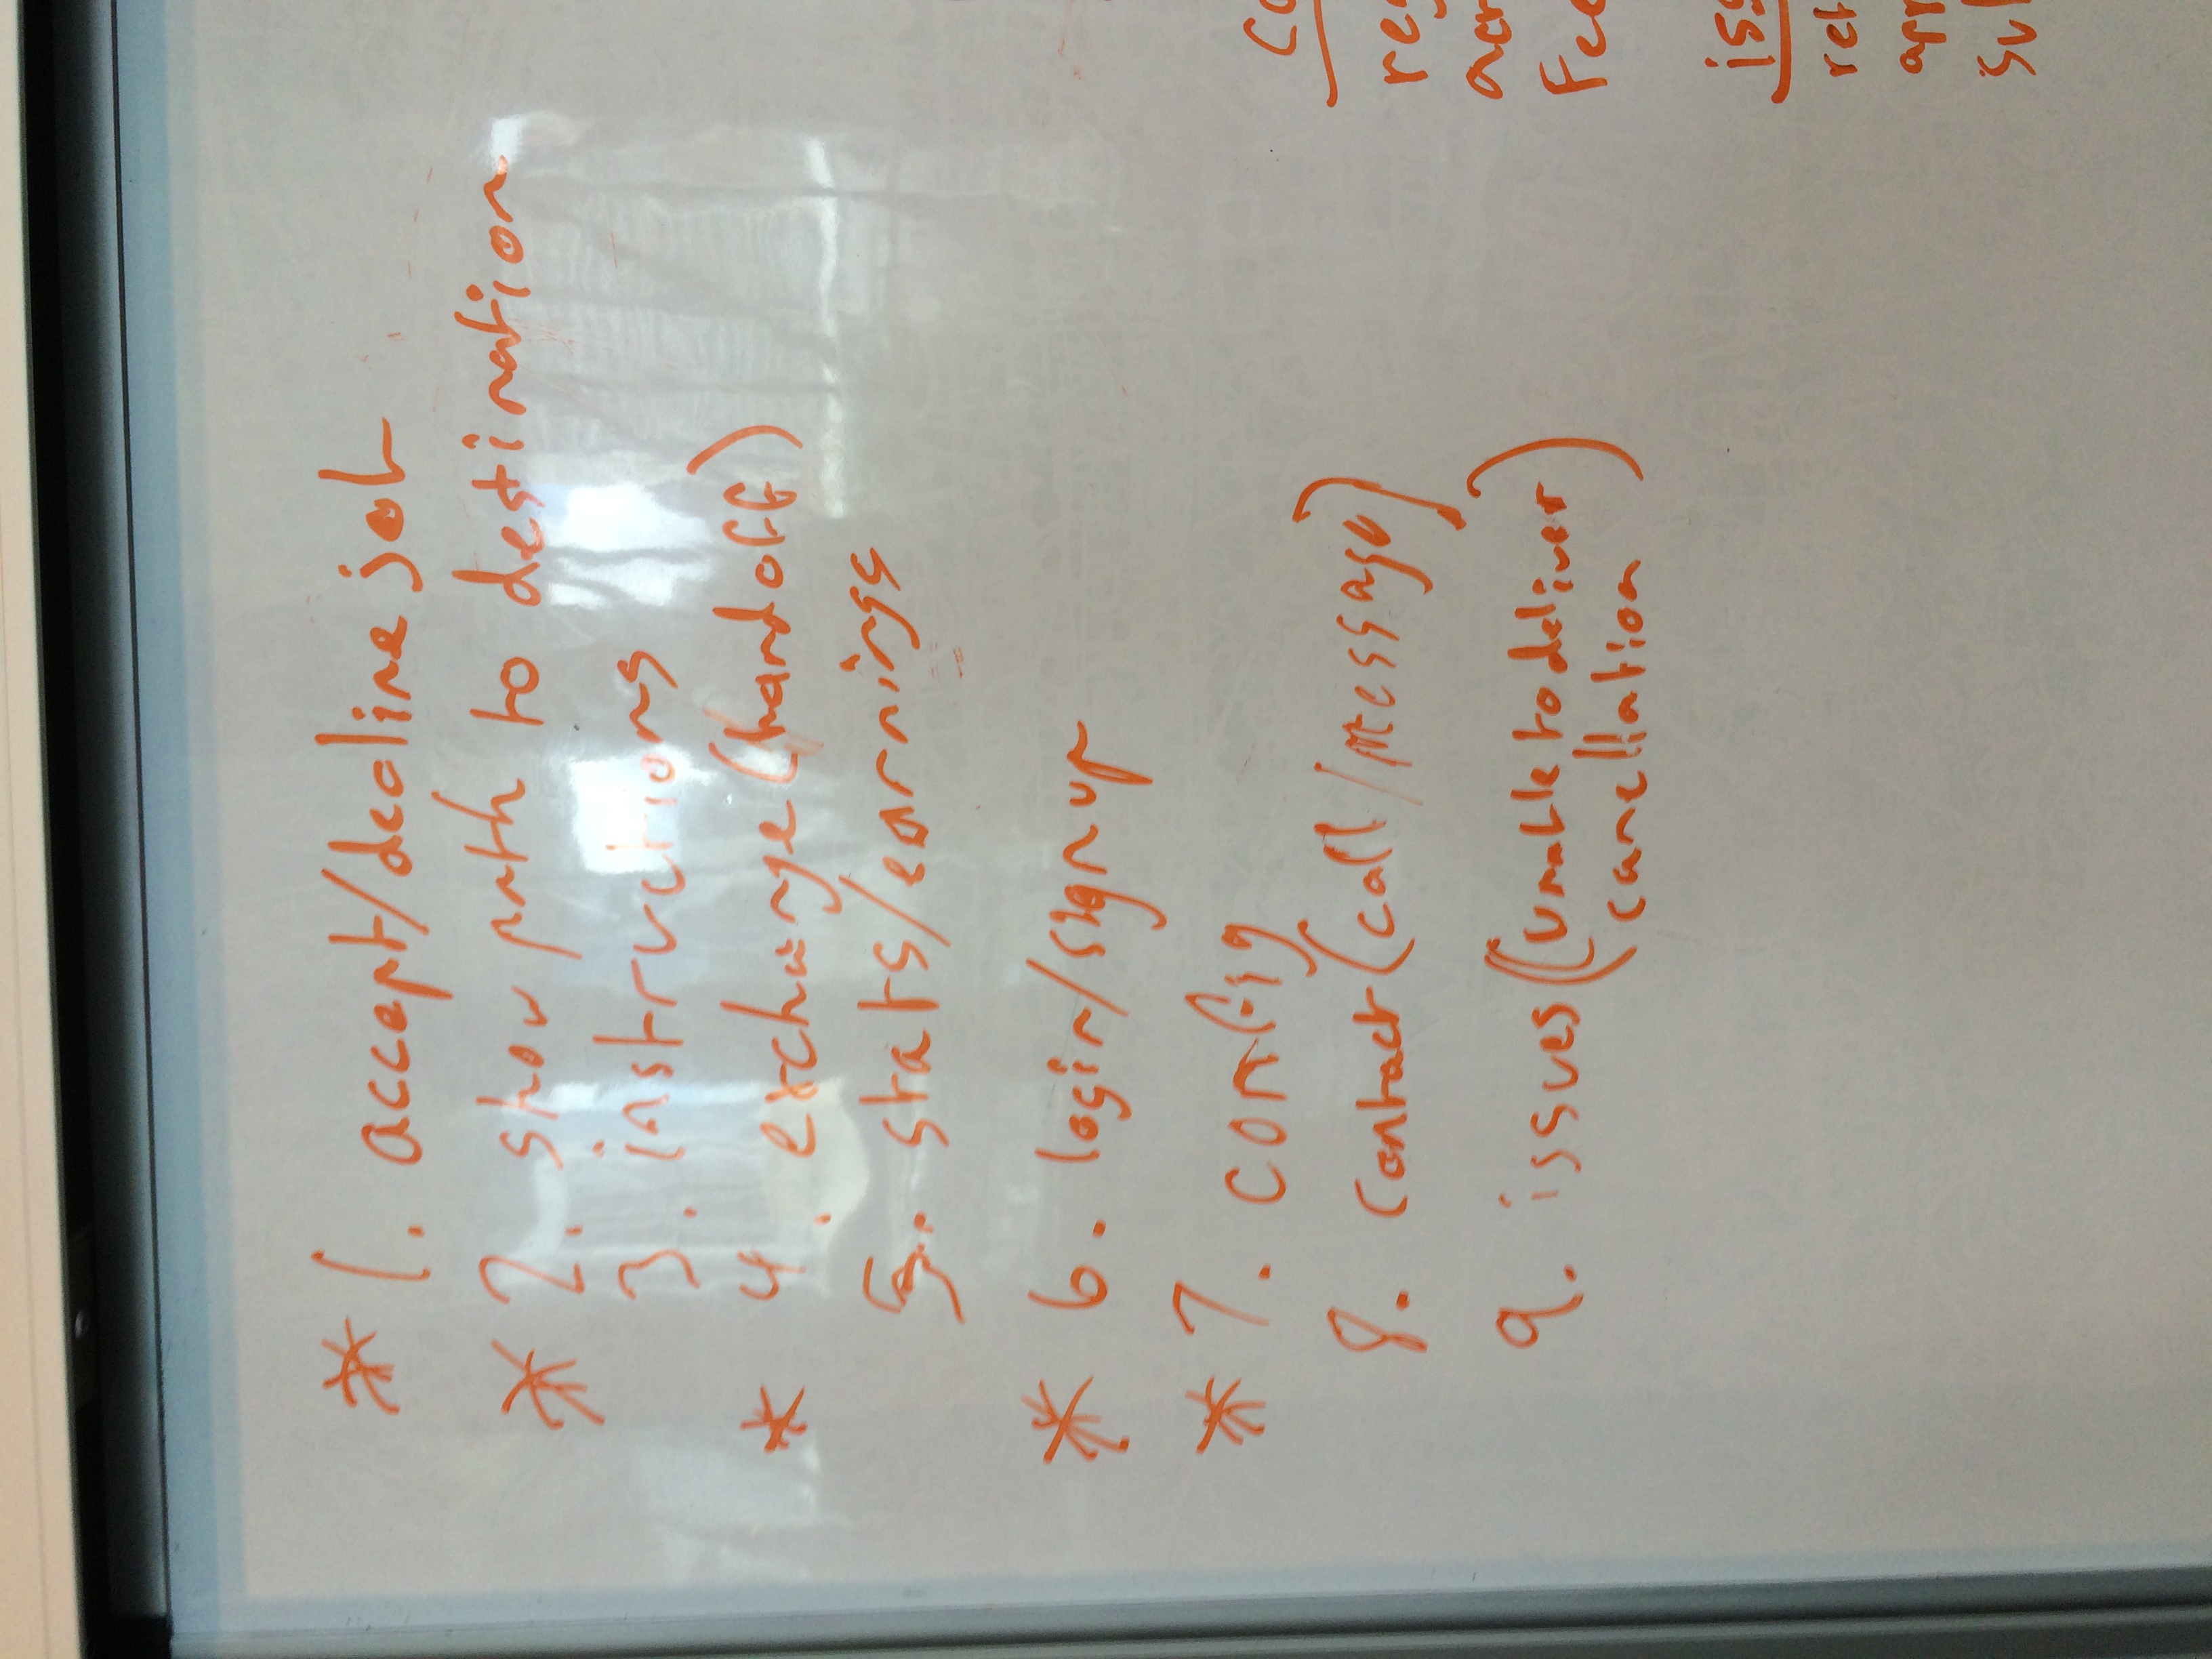 * 1. accept/decline job
* 2. show path to destination
3. instructions
* 4. exchange (handoff)
5. stats/earnings
* 6. login/signup
* 7. config
8. contact (call/message)
9. issues (unable to deliver
canellation)
iss